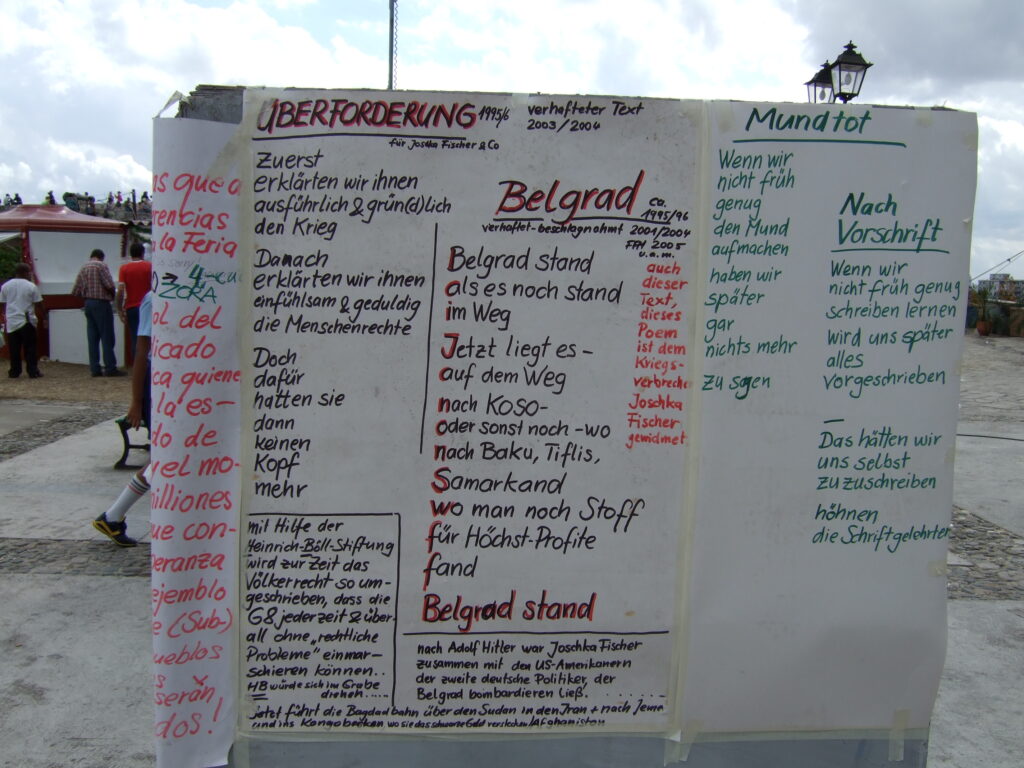 ns que a
rencias
la Feria
4
ZOKA
ol del
licado
ca quiene
la es-
do de
vel mo-
illiones
ue con-
eranza
ejemblo
e (Sub-)
ueblos
s
serán
dos!
ÜBERFORDERUNG 1995/6
für Joschka Fischer & Co
verhafteter Text
2003/2004
Zuerst
erklärten wir ihnen
ausführlich & grün(d)lich
den Krieg
Danach
erklärten wir ihnen
einfühlsam & geduldig
die Menschenrechte
Doch
dafür
hatten sie
dann
keinen
Kopf
mehr
mit Hilfe der
Heinrich-Böll-Stiftung
wird zur Zeit das
Völkerrecht so um-
geschrieben, dass die
G8 jederzeit & über-
all ohne „rechtliche
Probleme" einmar-
schieren können..
HB würde sich im Grabe
drehen.....
Belgrad ca.
1995/96
verhaftet-beschlagnahmt 2001/2004
FFM 2005
u.a.m.
Belgrad stand
als es noch stand
im Weg
Jetzt liegt es -
auf dem Weg
nach KOSO-
oder sonst noch -wo
nach Baku, Tiflis,
Samarkand
wo man noch Stoff
für Höchst-Profite
fand
Belgrad stand
auch
dieser
Text,
dieses
Poem
ist dem
Kriegs-
verbreche
Joschka
Fischer
gewidmet
nach Adolf Hitler war Joschka Fischer
zusammen mit den US-Amerikanern
der zweite deutsche Politiker, der
Belgrad bombardieren ließ.
jetzt führt die Bagdadbahn über den Sudan in den Iran + nach Jemen
und ins Kongobecken, wo sie das schwarze Gold /Afghanistan
Mundtot
Wenn wir
nicht früh
genug
den Mund
aufmachen
haben wir
später
gar
nichts mehr
zu sagen
Nach
Vorschrift
Wenn wir
nicht früh genug
schreiben lernen
wird uns später
alles
vorgeschrieben
—
Das hätten wir
uns selbst
zuzuschreiben
höhnen
die Schriftgelehrten